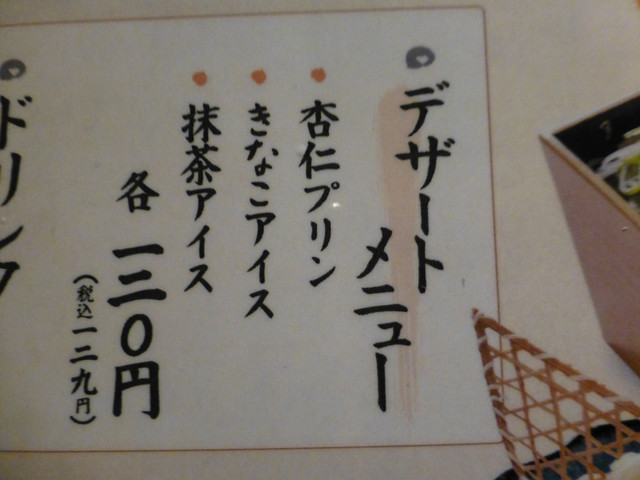 デザート
メニュー
杏仁プリン
きなこアイス
抹茶アイス
各 一二〇円
(税込一二九円)
ドリンク